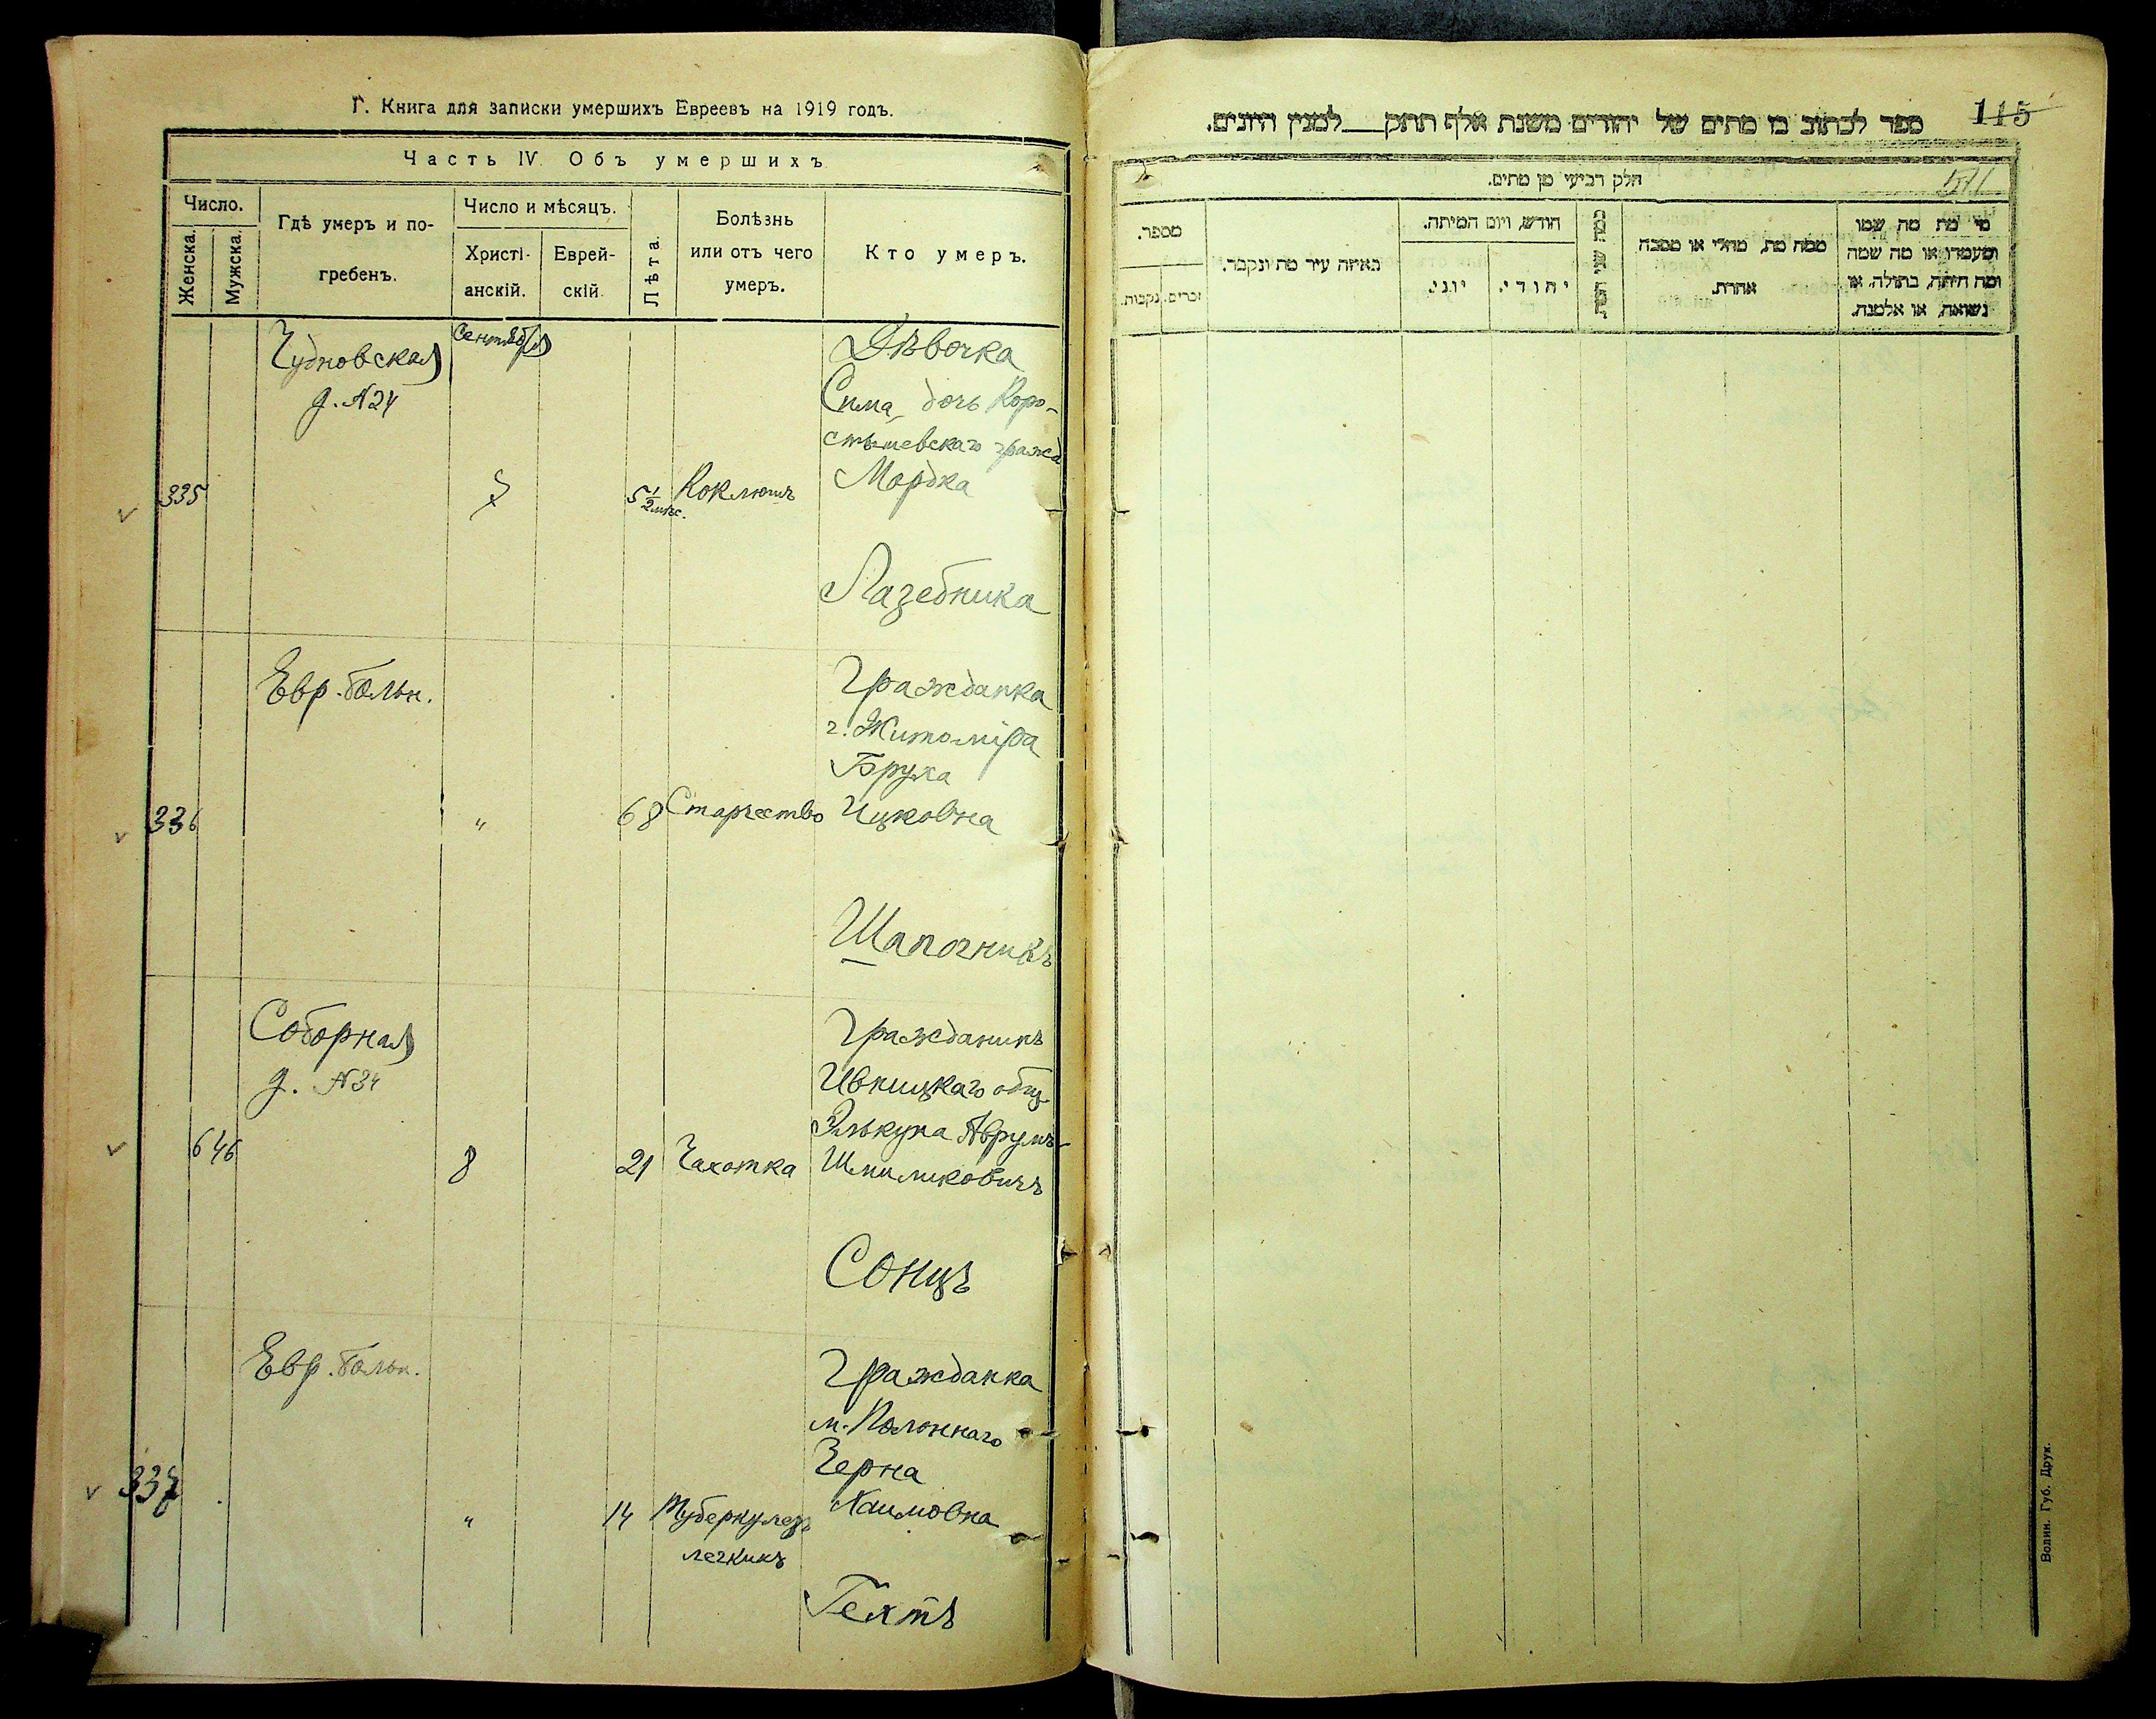 Г. Книга для записки умершихъ Евреевъ на 1919 годъ.
Часть IV. Объ умершихъ
Число.
Женска.
Мужска.
Гдѣ умеръ и по-
гребенъ.
Число и мѣсяцъ.
Христі-
анскій.
Еврей-
скій.
Лѣта.
Болѣзнь
или отъ чего
умеръ.
Кто умеръ.
Чудновская
д. №24
Сентября
Дѣвочка
Сима, дочь Коро-
стышевскаго гражд
335
7
5 1/2 мѣс.
Коклюшъ
Мордка
Лазебника
Евр. больн.
Гражданка
г. Житоміра
Бруха
336
"
68
Старчество
Ицковна
Шапочникъ
Соборная
д. №34
Гражданинъ
Ивницкаго общ
Элькуна Аврумъ-
646
8
21
Чахотка
Шмиликовичъ
Сонцъ
Евр. больн.
Гражданка
м. Полоннаго
Черна
337
"
14
Туберкулезъ
легкихъ
Хаимовна
Гехтъ
115
ספר לכתוב בו מתים של יהודים משנת אלף תתק___למנין היונים.
חלק רביעי מן מתים.
מספר.
זכרים.
נקבות.
באיזה עיר מת ונקבר.
חודש, ויום המיתה.
יוני.
יהודי.
ממה מת, מחלי או מסבה
אחרת.
מי מת מה שמו
ומעמדו או מה שמה
ומה היתה, בתולה, או
נשואה, או אלמנה.
Волин. Губ. Друк.